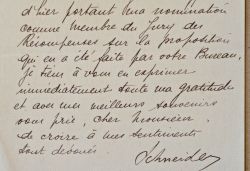 d'hier portant ma nomination
comme membre du Jury des
Récompenses sur la proposition
qui en a été faite par votre Bureau,
je tiens à vous en exprimer
immédiatement toute ma gratitude
et avec mes meilleurs souvenirs
vous prie, cher Monsieur,
de croire à mes sentiments
tout dévoués.
Schneider